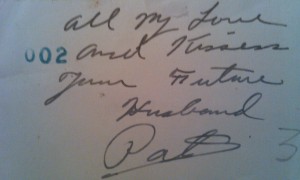 All My Love
002 and Kisses
Your Future
Husband
Pat
3